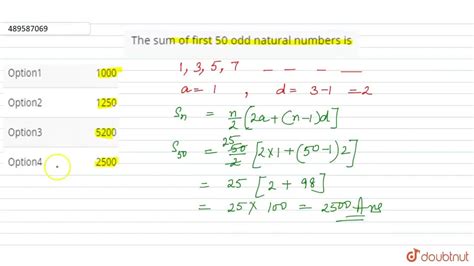 489587069
The sum of first 50 odd natural numbers is
Option1 1000
Option2 1250
Option3 5200
Option4 2500
1, 3, 5, 7 _ _ _ _
a = 1 , d = 3-1 = 2
Sn = n/2 [2a+(n-1)d]
S50 = 25 50/2 [2×1+(50-1)2]
= 25 [2 + 98]
= 25 × 100 = 2500 Ans
doubtnut